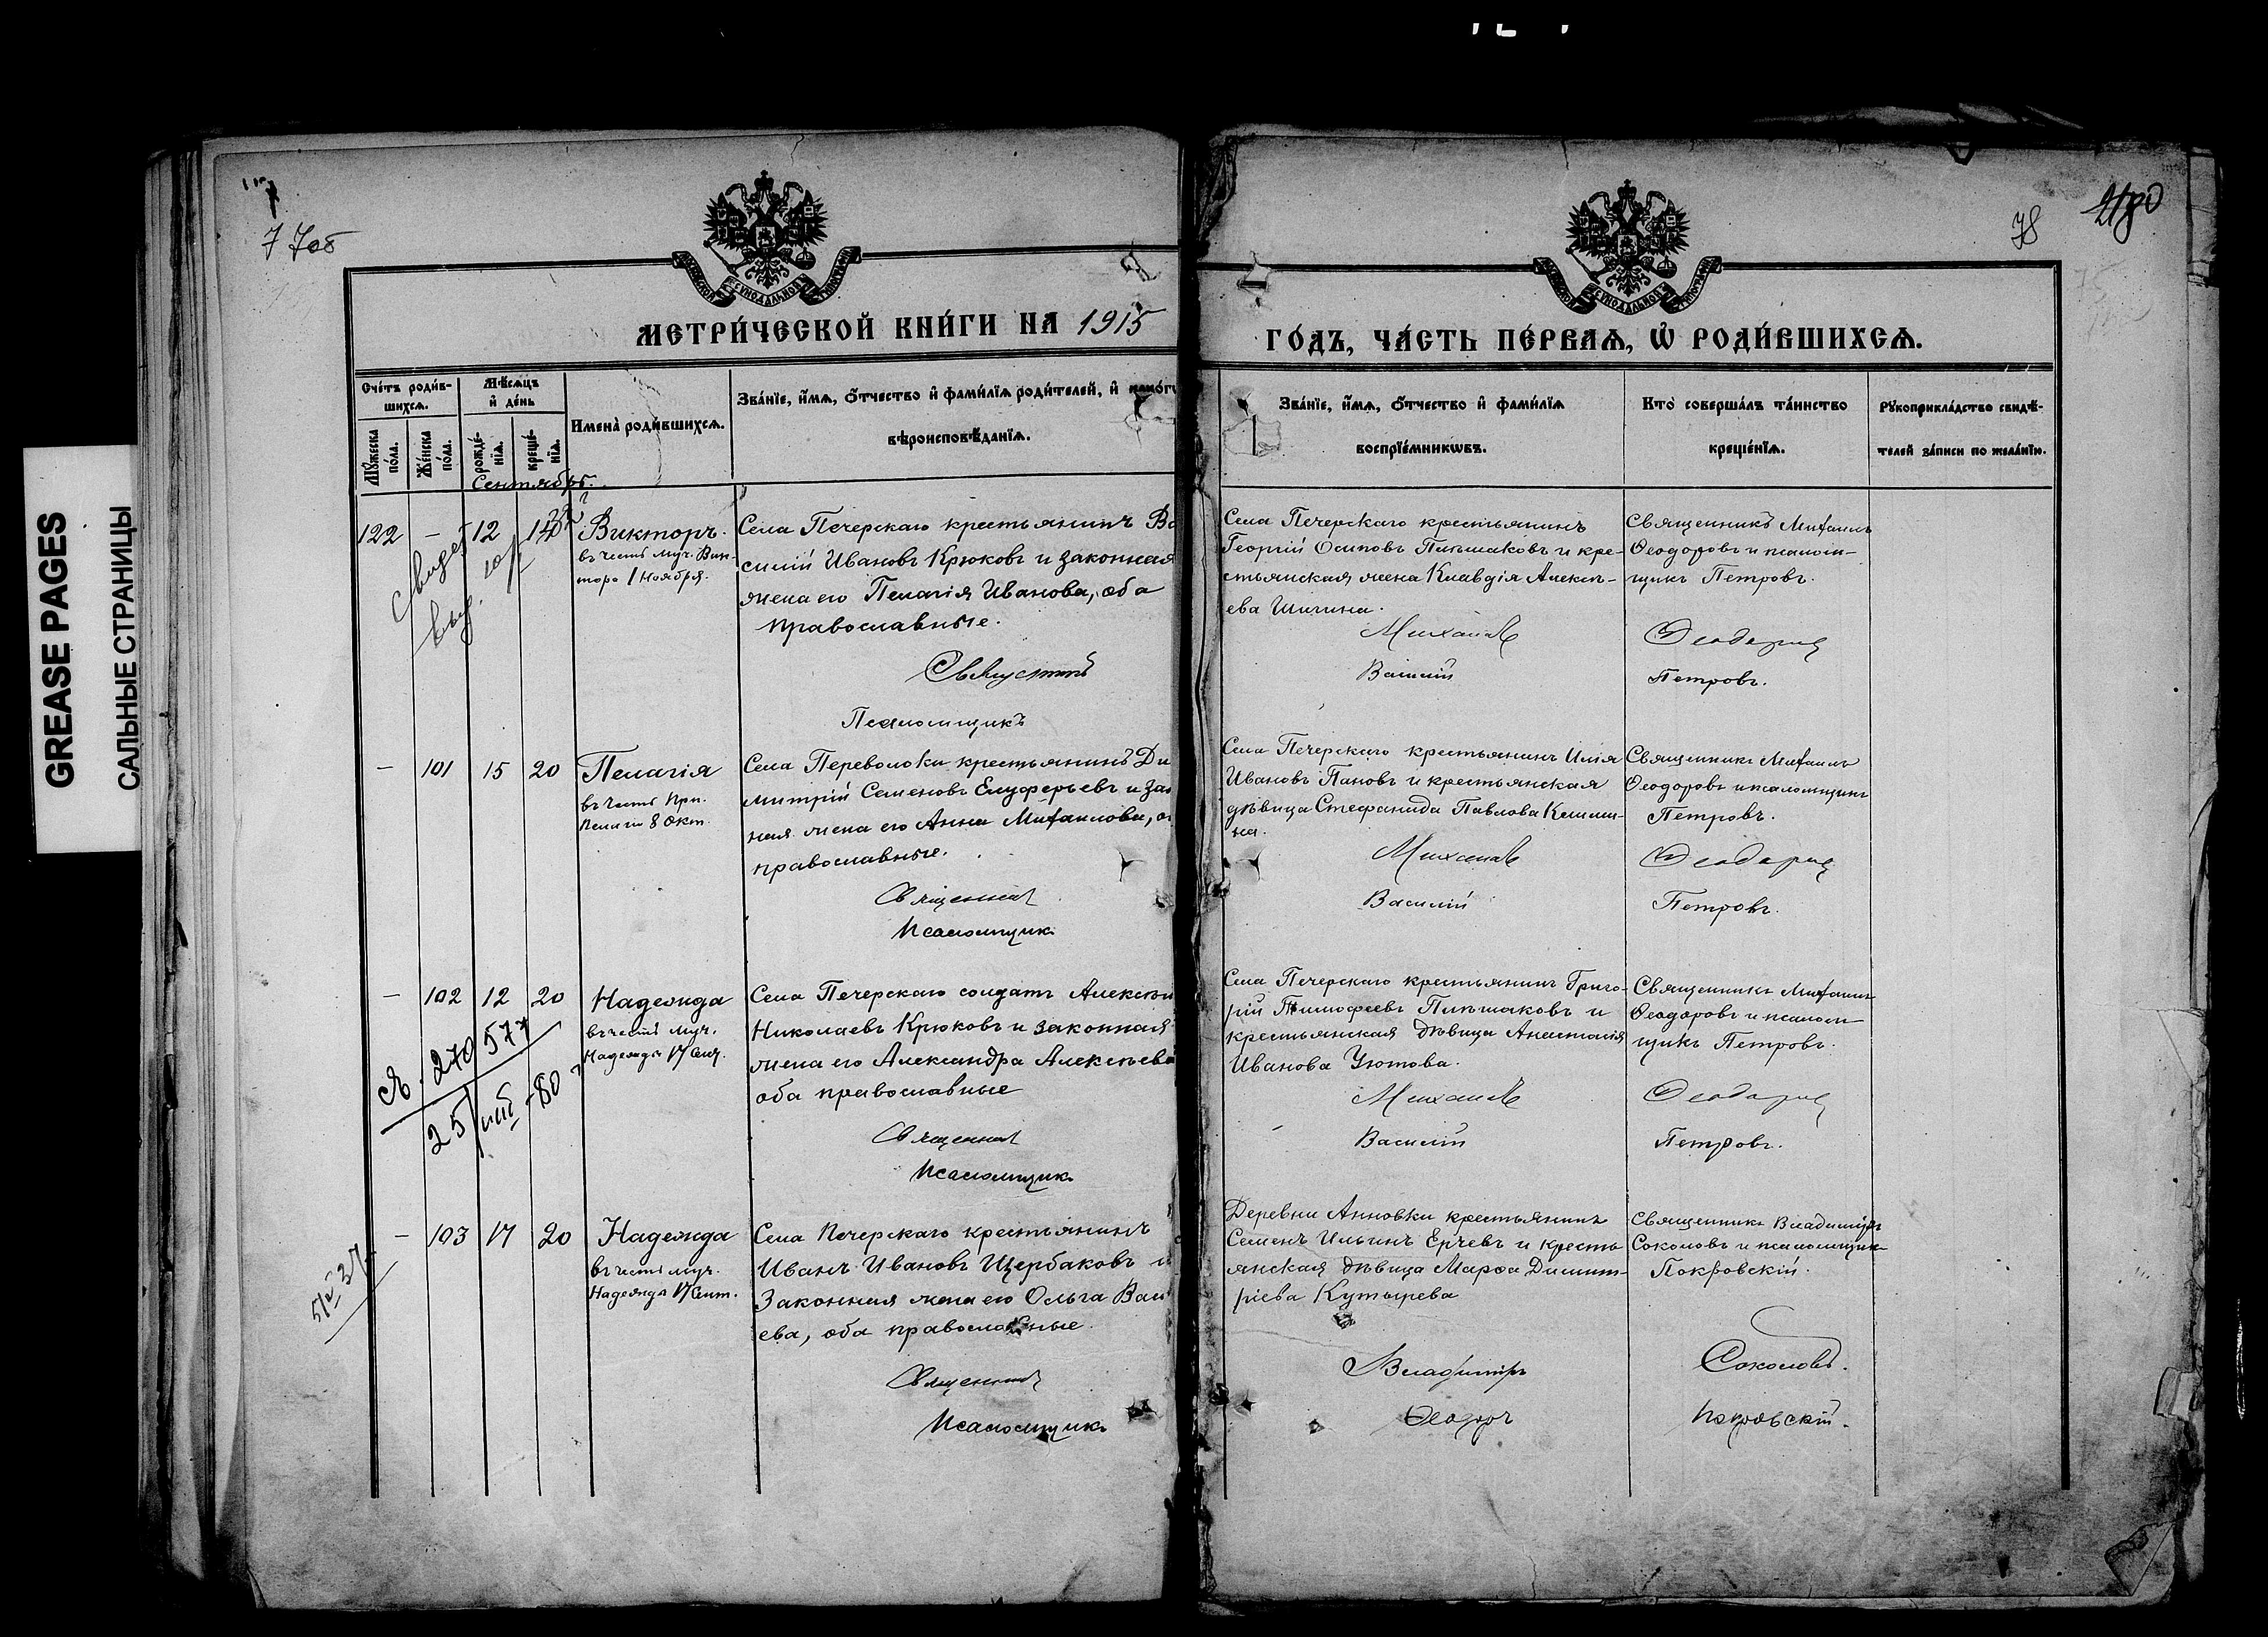 GREASE PAGES
САЛЬНЫЕ СТРАНИЦЫ
77об
78
МЕТРИ́ЧЕСКОЙ КНИ́ГИ НА 1915
ГО́ДЪ, ЧА́СТЬ ПЕ́РВАѦ, Ѡ҆ РОДИ́ВШИХСѦ.
Сче́тъ роди́в-
шихсѧ.
Мѣ́сѧцъ
и҆ де́нь
Мꙋ́жеска по́ла.
Же́нска по́ла.
рожде́-
нїѧ.
креще́-
нїѧ.
Имена̀ роди́вшихсѧ.
Зва́нїе, и҆́мѧ, ѻ҆́тчество и҆ фами́лїѧ роди́телей, и҆ како́гѡ
вѣроисповѣ́данїѧ.
Зва́нїе, и҆́мѧ, ѻ҆́тчество и҆ фами́лїѧ
воспрїе́мникѡвъ.
Кто̀ соверша́лъ та́инство
креще́нїѧ.
Рꙋкоприкла́дство свидѣ́-
телей за́писи по жела́нїю.
Сентябрь.
122 — 12
Викторъ.
въ честь муч. Вик-
тора 1 Ноября.
Села Печерскаго крестьянинъ Ва
силій Ивановъ Крюковъ и законная
жена его Пелагія Иванова, оба
православные.
Священникъ
Псаломщикъ
Села Печерскаго крестьянинъ
Георгій Осиповъ Пикшаковъ и кре-
стьянская жена Клавдія Алексѣ-
ева Шигина.
Михаилъ
Василій
Священникъ Михаилъ
Ѳеодоровъ и псалом-
щикъ Петровъ.
Ѳеодоровъ
Петровъ.
— 101 15 20
Пелагія
въ честь Прп.
Пелагіи 8 Окт.
Села Переволоки крестьянинъ Ди
митрій Семеновъ Елуферьевъ и зак
ная жена его Анна Михаилова, о
православные.
Священникъ
Псаломщикъ
Села Печерскаго крестьянинъ Илія
Ивановъ Пановъ и крестьянская
дѣвица Стефанида Павлова
Михаилъ
Василій
Священникъ Михаилъ
Ѳеодоровъ и псаломщикъ
Петровъ.
Ѳеодоровъ
Петровъ.
— 102 12 20
Надежда
въ честь муч.
Надежды 17 Сент.
Села Печерскаго солдатъ Алексѣй
Николаевъ Крюковъ и законная
жена его Александра Алексѣева
оба православные
Священникъ
Псаломщикъ
Села Печерскаго крестьянинъ Григо-
рій Тимофеевъ Пикшаковъ и
крестьянская дѣвица Анастасія
Иванова Уютова.
Михаилъ
Василій
Священникъ Михаилъ
Ѳеодоровъ и псалом-
щикъ Петровъ.
Ѳеодоровъ
Петровъ.
— 103 17 20
Надежда
въ честь муч.
Надежды 17 Сент.
Села Печерскаго крестьянинъ
Иванъ Ивановъ Щербаковъ и
Законная жена его Ольга Васи
ева, оба православные.
Священникъ
Псаломщикъ
Деревни Анновки крестьянинъ
Семенъ Ильинъ Ерчевъ и кресть
янская дѣвица Марѳа Димит-
ріева Кутырева
Владиміръ
Ѳеодоръ
Священникъ Владиміръ
Соколовъ и псаломщикъ
Покровскій.
Соколовъ.
Покровскій.